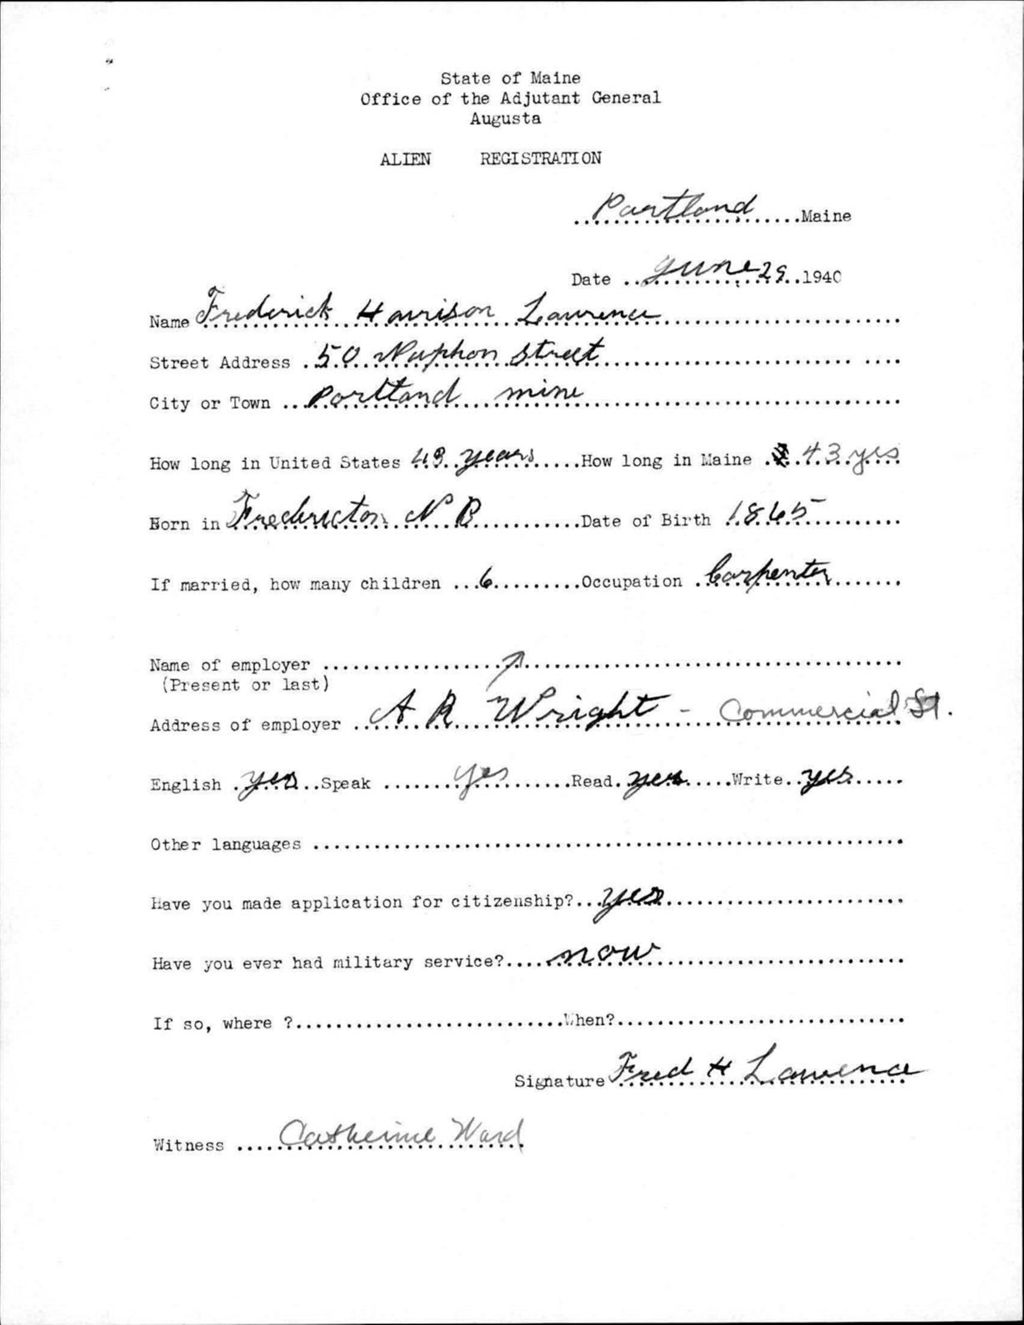 State of Maine
Office of the Adjutant General
Augusta
ALIEN REGISTRATION
Portland Maine
Date June 29 1940
Name Frederick Harrison Lawrence
Street Address 50 Street
City or Town Portland mine
How long in United States 43 years How long in Maine 43 yrs
Born in Fredericton N B Date of Birth 1865
If married, how many children 6 Occupation Carpenter
Name of employer
(Present or last)
Address of employer A R Wright - Commercial St.
English yes Speak yes Read yes Write yes
Other languages
Have you made application for citizenship? yes
Have you ever had military service? now
If so, where ? When?
Signature Fred H Lawrence
Witness Catherine Ward